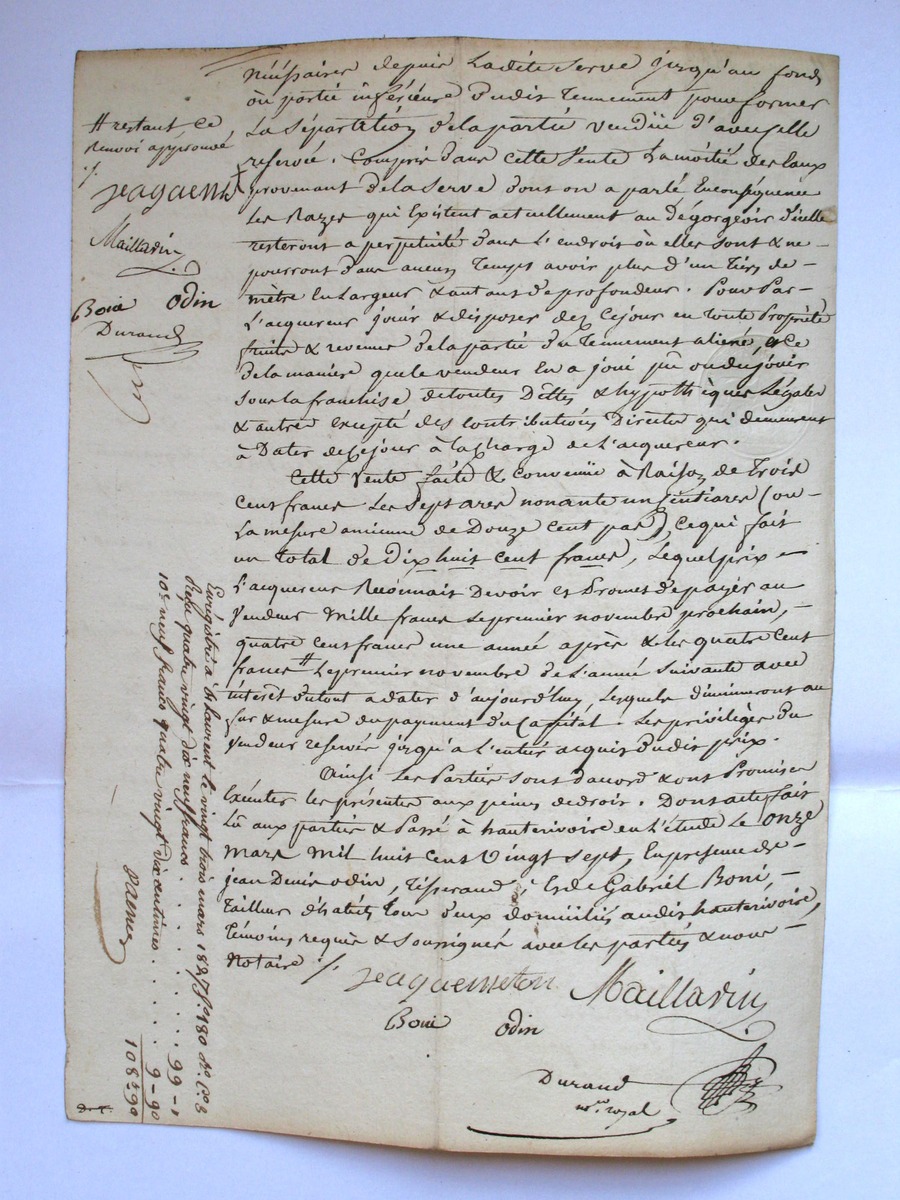 nécéssaires depuis Ladite Serve jusqu'au fond
ou partie inférieure dudit tennement pour former
La Séparation de la partie vendüe d'avec celle
reservée. Compris dans cette Vente La moitié des Eaux
provenant de la Serve dont on a parlé En conséquence
Les Razes qui Existent actuellement au Dégorgeoir d'icelle
resteront a perpétuité dans L'endroit où elles sont & ne
pourront dans aucun Temps avoir plus d'un tiers de
mètre en Largeur & autant de profondeur. Pour Par
L'acquereur jouir & disposer dez Cejour en toute Propriété
fruits & revenus de la partie du Tennement aliené, & Ce
de la maniere que le vendeur En a joui pu ou du jouir
sous la franchise de toutes Dettes & hypothèques Légales
& autres excepté des Contributions Directes qui demeurent
à Dater de Cejour à la Charge de L'acquereur.
Cette Vente faite & Convenüe à Raison de Trois
Cent francs Les Sept ares nonante un Centiares (ou
La mesure ancienne de Douze Cent pas), Ce qui fait
un Total de Dix huit Cent francs, Lequel prix
L'acquereur Reconnait Devoir et Promet de payer au
Vendeur Mille francs Le premier novembre prochain,
quatre Cent francs une année après & les quatre Cent
francs # Le premier novembre de L'année Suivante avec
intérêt du tout a dater d'aujourd'huy, Lesquels diminueront au
fur & mesure du payement du Cappital. Les privilèges du
Vendeur reservés jusqu'a L'entier acquis dudit prix.
Ainsi Les Parties sont d'accord & ont Promis
Exécuter les présentes aux peines de droit. Dont acte fait
Lû aux parties & Passé à hauterivoire en L'étude Le onze
mars mil huit Cent Vingt Sept, En présence de
jean Denis odin, Tisserand, & de Gabriel Boni,
Tailleur d'habits tous d'eux domiciliés audit hauterivoire,
Témoins requis & Soussignés avec les parties & nous
Notaire ./.
Maillavin
Boni odin
Durand
nre royal
# restant, Ce
renvoi approuvé
./.
Maillavin
Boni Odin
Durand
Enrégistré à St Laurent le vingt trois mars 1827 fo 180 Ro Ce 8
Reçu quatre vingt dix neuf francs . . . . . . 99 - "
10e neuf francs quatre vingt dix centimes . . . . 9 - 90
108 f 90